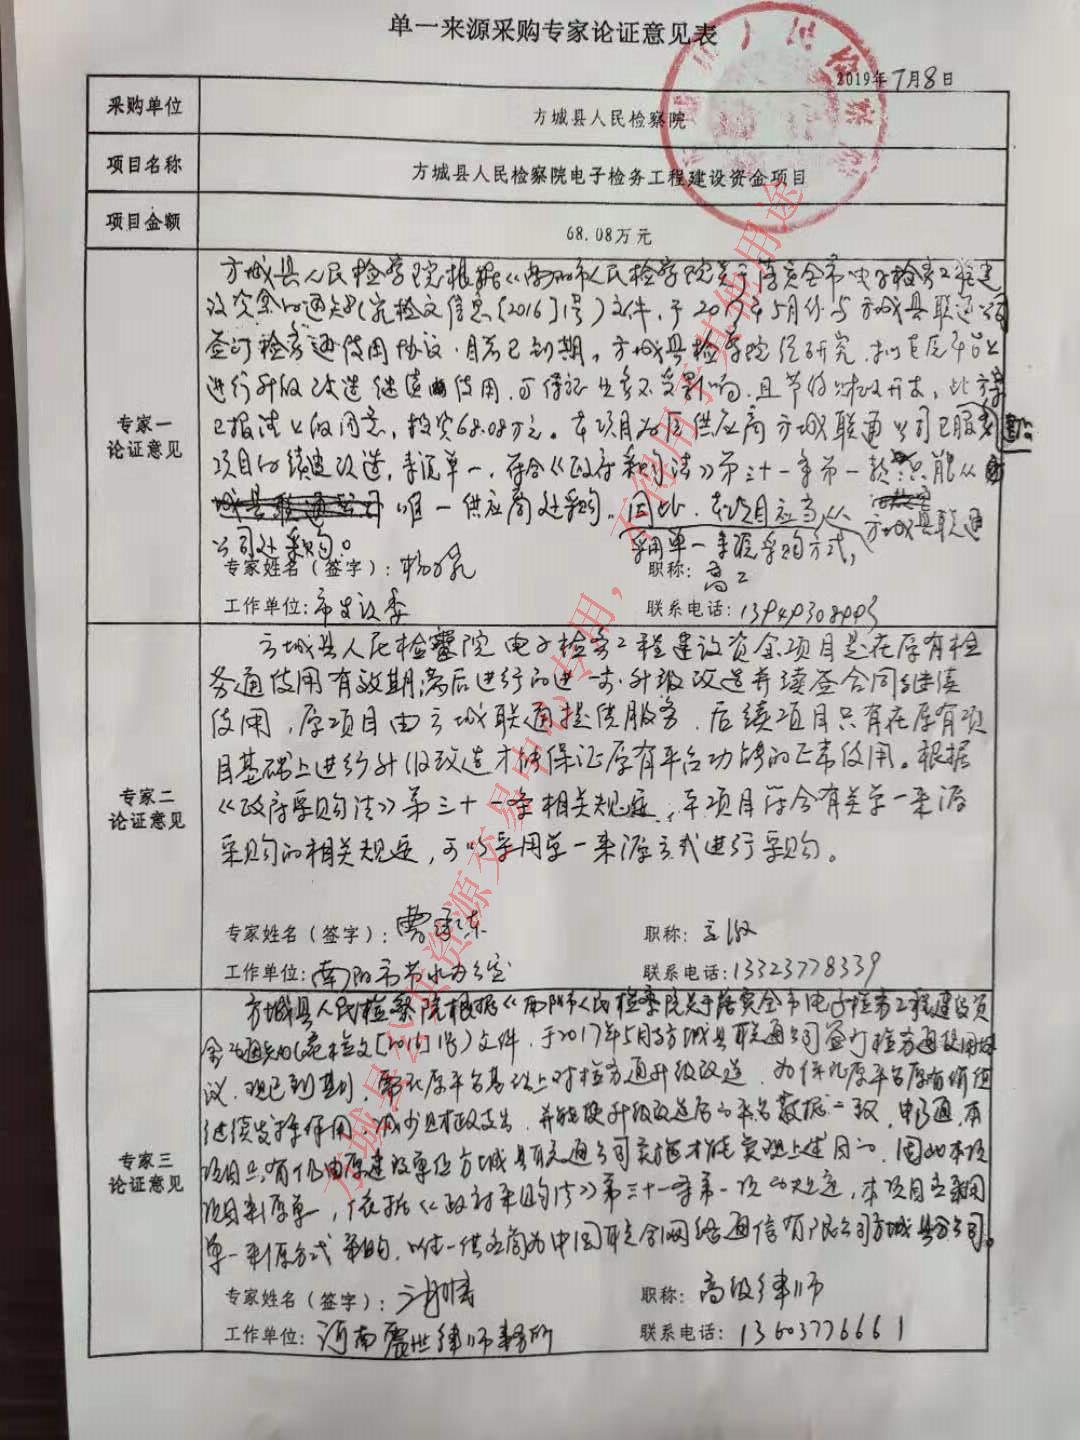 单一来源采购专家论证意见表
2019年7月8日
采购单位
方城县人民检察院
项目名称
方城县人民检察院电子检务工程建设资金项目
项目金额
68.08万元
专家一
论证意见
方城县人民检察院根据《南阳市人民检察院关于落实全市电子检务工程建
设资金的通知》(宛检文信息[2016]1号)文件,于2017年5月份与方城县联通公司
签订检务通使用协议,目前已到期。方城县检察院经研究,拟在原平台上
进行升级改造继续使用,可保证业务不受影响,且节约财政开支,此方案
已报请上级同意,投资68.08万元。本项目为原供应商方城联通公司已服务
项目的续建改造,来源单一,符合《政府采购法》第三十一条第一款:只能从
唯一供应商处采购。因此,本项目应当从方城县联通
公司处采购。
采用单一来源采购方式,
专家姓名(签字):
职称:高工
工作单位:市发改委
联系电话:
专家二
论证意见
方城县人民检察院电子检务工程建设资金项目是在原有检
务通使用有效期满后进行的进一步升级改造并续签合同继续
使用,原项目由方城联通提供服务,后续项目只有在原有项
目基础上进行升级改造才能保证原有平台功能的正常使用。根据
《政府采购法》第三十一条相关规定,本项目符合有关单一来源
采购的相关规定,可以采用单一来源方式进行采购。
专家姓名(签字):
职称:
工作单位:南阳市节水办公室
联系电话:13323778339
专家三
论证意见
方城县人民检察院根据《南阳市人民检察院关于落实全市电子检务工程建设资
金的通知》(宛检文[2016]1号)文件,于2017年5月与方城县联通公司签订检务通使用协
议,现已到期,需在原平台基础上对检务通升级改造,为保证原平台原有功能
继续支持使用,减少财政支出,并能使升级改造后的平台数据一致,
项目只有仍由原建设单位方城县联通公司实施才能实现上述目的,因此本项
项目来源单一,依据《政府采购法》第三十一条第一项的规定,本项目应采用
单一来源方式采购,唯一供应商为中国联合网络通信有限公司方城县分公司。
专家姓名(签字):
职称:高级律师
工作单位:河南震世律师事务所
联系电话:13603776661
方城县公共资源交易中心专用,不得用于其他用途